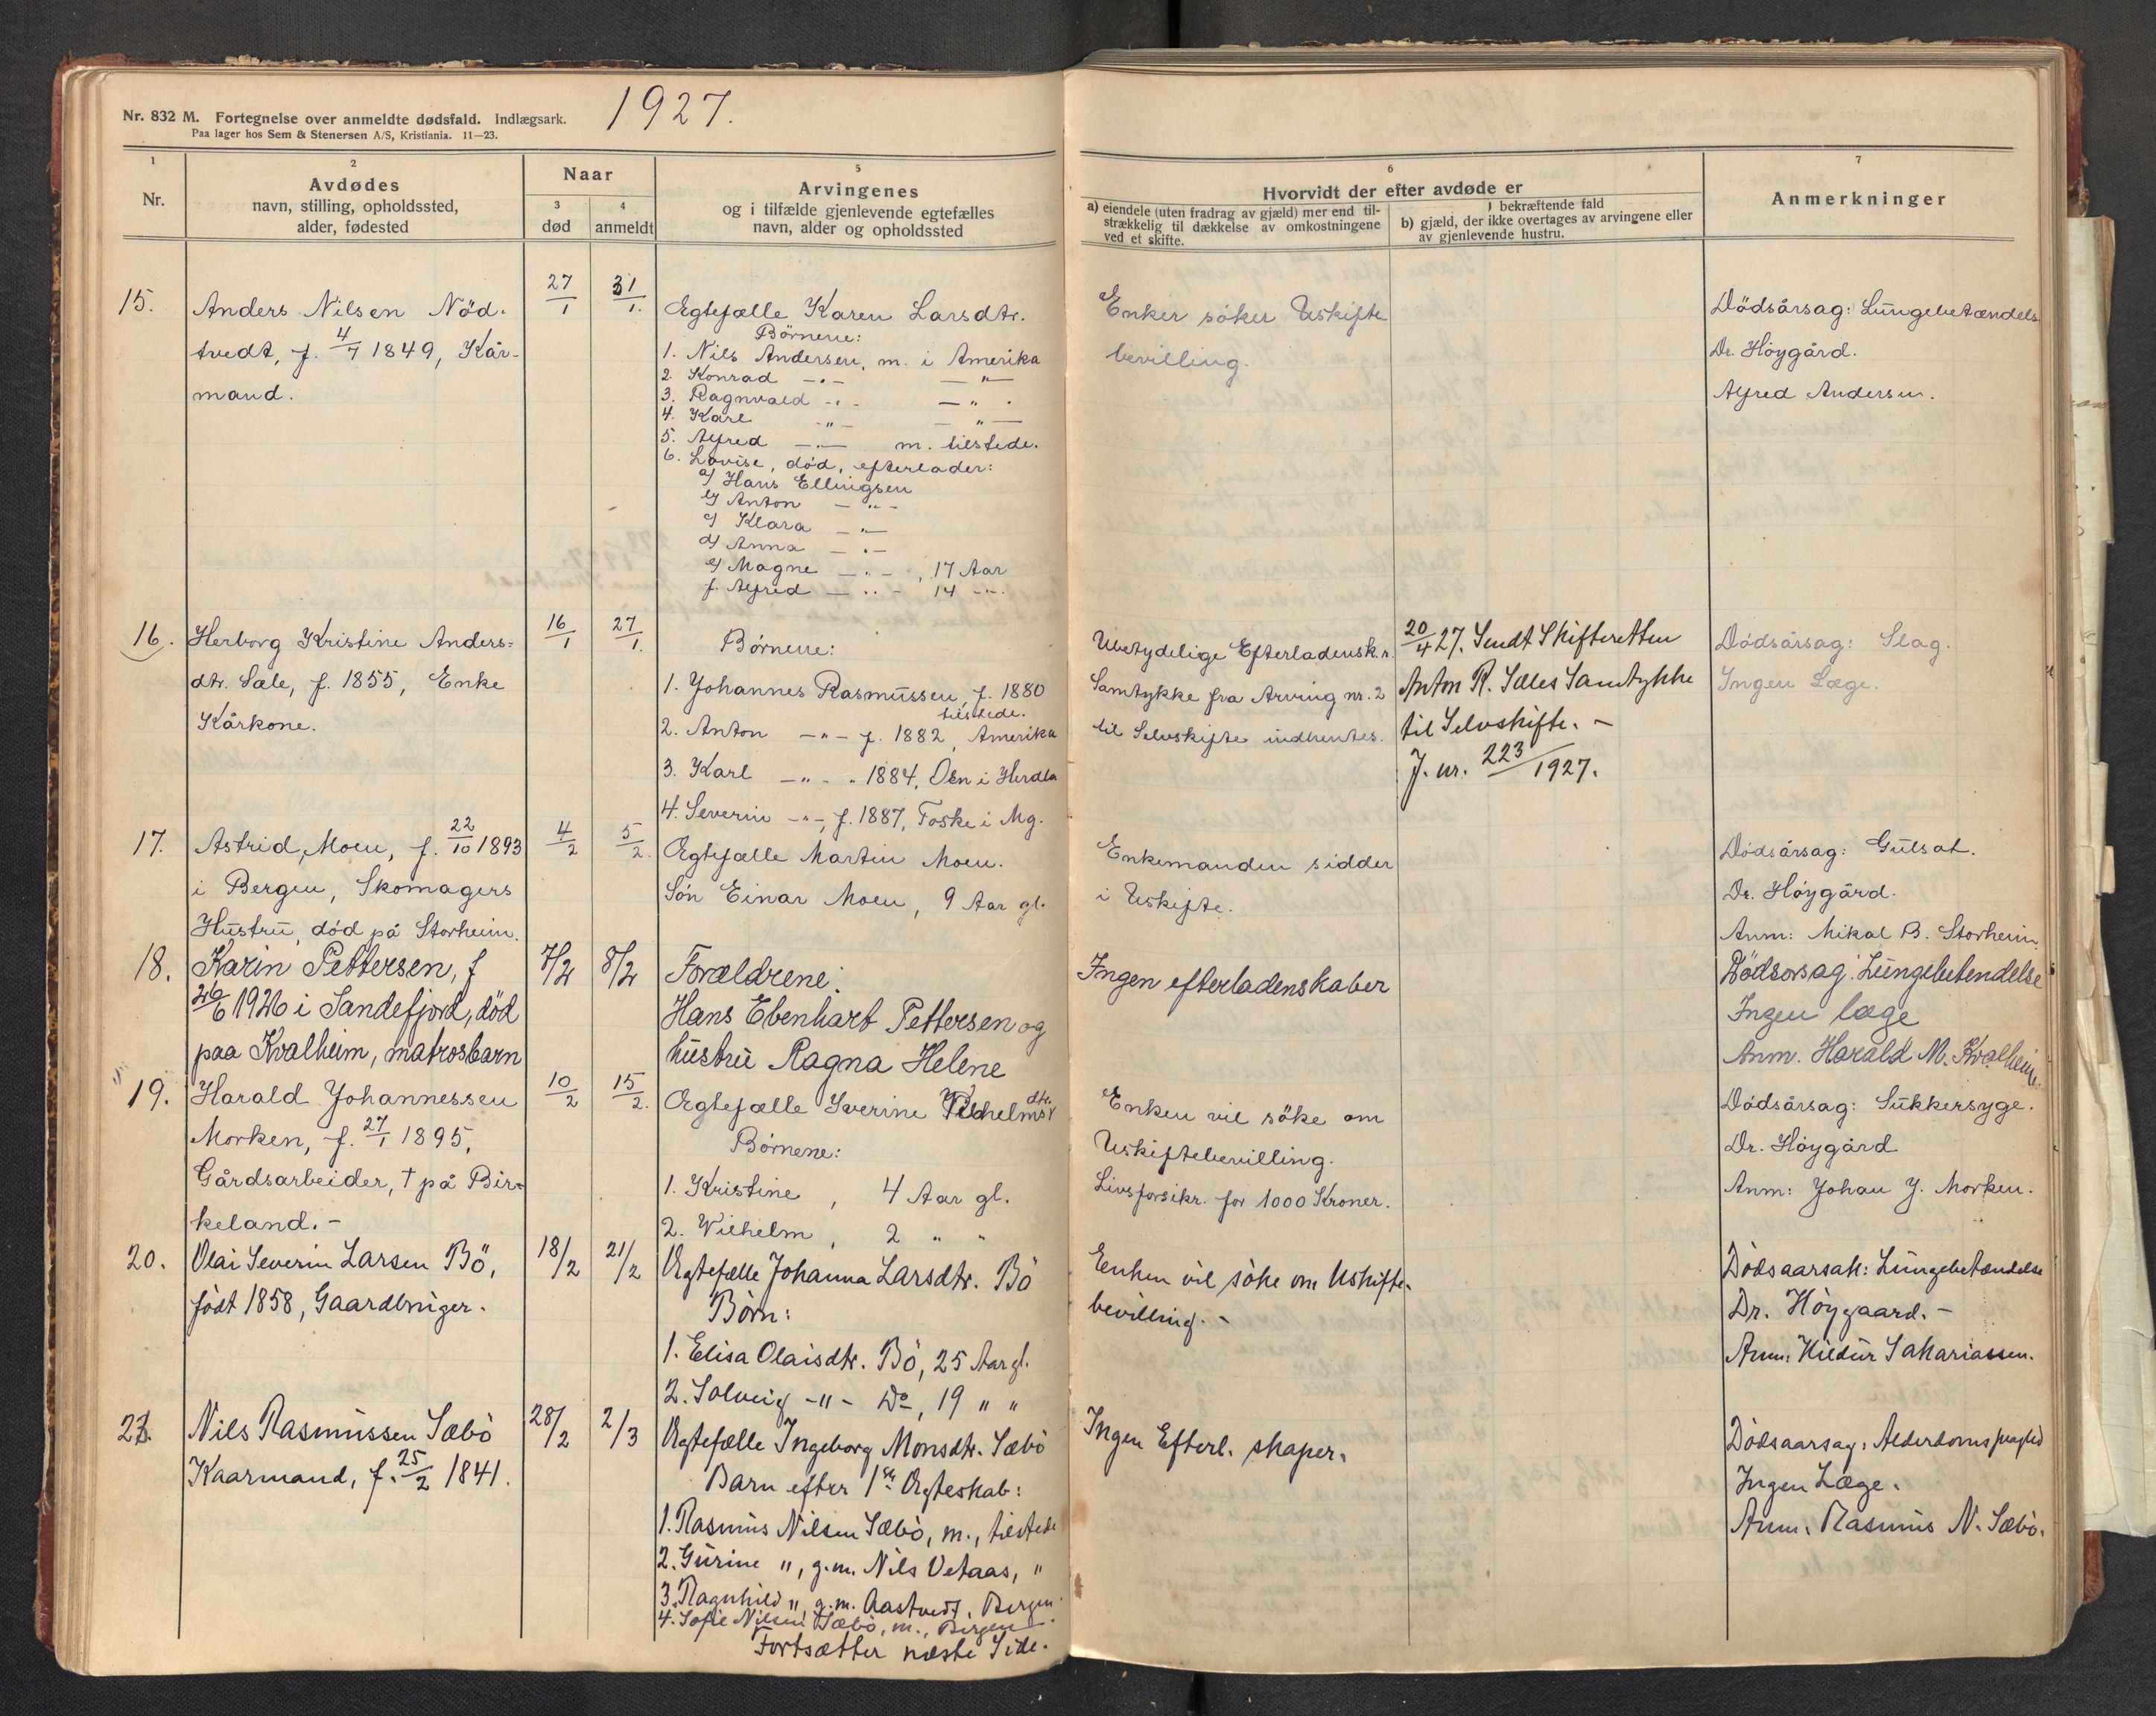 1927.
Nr. 832 M. Fortegnelse over anmeldte dødsfald. Indlægsark.
Paa lager hos Sem & Stenersen A/S, Kristiania. 11—23.
1
Nr.
2
Avdødes
navn, stilling, opholdssted,
alder, fødested
Naar
3
død
4
anmeldt
5
Arvingenes
og i tilfælde gjenlevende egtefælles
navn, alder og opholdssted
6
Hvorvidt der efter avdøde er
a) eiendele (uten fradrag av gjæld) mer end til-
strækkelig til dækkelse av omkostningene
ved et skifte.
I bekræftende fald
b) gjæld, der ikke overtages av arvingene eller
av gjenlevende hustru.
7
Anmerkninger
15.
Anders Nilsen Nöd-
tvedt, f. 4/7 1849, Kår-
mand.
27/1
31/1.
Egtefælle Karen Larsdtr.
Börnene:
1. Nils Andersen, m. i Amerika
2. Konrad -"- -"-
3. Ragnvald -"- -"-
4. Karl -"- -"-
5. Alfred -"- m. tilstede.
6. Lovise, död, efterlader:
a) Hans Ellingsen
b) Anton -"-
c) Klara -"-
d) Anna -"-
e) Magne -"-, 17 Aar
f. Alfred -"- 14 -"-
Enker söker Uskifte
bevilling.
Dödsårsag: Lungebetændels
Dr. Höygård.
Alfred Andersen.
16.
Herborg Kristine Anders=
dtr. Sæle, f. 1855, Enke
Kårkone.
16/1
27/1.
Börnene:
1. Johannes Rasmussen, f. 1880
tilstede.
2. Anton -"- f. 1882, Amerika
3. Karl -"- " 1884, Oen i Herdla
4. Severin -"-, f. 1887, Foske i Mg.
Ubetydelige Efterladensk.r.
Samtykke fra Arving nr. 2
til Selvskifte indhentes.
20/4 27. Sendt Skifteretten
Anton R. Sæles Samtykke
til Selvskifte. -
J. nr. 223/1927.
Dödsårsag: Slag.
Ingen Læge.
17.
Astrid Moen, f. 22/10 1893
i Bergen, Skomagers
Hustru, död på Storheim.
4/2
5/2.
Ægtefælle Martin Moen.
Sön Einar Moen, 9 Aar gl.
Enkemanden sidder
i Uskifte.
Dödsårsag: Gulsot.
Dr. Höygård.
Anm: Mikal B. Storheim
18.
Karin Pettersen, f
26/6 1926 i Sandefjord, död
paa Kvalheim, matrosbarn
7/2
8/2
Forældrene:
Hans Ebenhart Pettersen og
hustru Ragna Helene
Ingen efterladenskaber
Dödsorsag: Lungebetendelse
Ingen læge
Anm. Harald M. Kvalheim.
19.
Harald Johannessen
Morken, f. 27/1 1895,
Gårdsarbeider, † på Bir-
keland. -
10/2
15/2.
Ægtefælle Iverine Vilhelmsdtr.
Börnene:
1. Kristine, 4 Aar gl.
2. Vilhelm, 2 " "
Enken vil söke om
Uskiftebevilling.
Livsforsikr. for 1000 Kroner.
Dödsårsag: Sukkersyge.
Dr. Höygård
Anm: Johan J. Morken.
20.
Olai Severin Larsen Bö,
födt 1858, Gaardbruger.
18/2
21/2
Ægtefælle Johanna Larsdtr. Bö
Börn:
1. Elisa Olaisdtr. Bö, 25 Aar gl.
2. Solveig -"- Do, 19 " "
Eenken vil söke om Uskifte-
bevilling. -
Dödsaarsak: Lungebetændelse
Dr. Höygaard. -
Anm: Hildur Sakariassen.
21.
Nils Rasmussen Sæbö
Kaarmand, f. 25/2 1841.
28/2
2/3
Ægtefælle Ingeborg Monsdtr. Sæbö
Barn efter 1ste Ægteskab:
1. Rasmus Nilsen Sæbö, m., tilstede
2. Gurine ", g.m. Nils Vetaas, "
3. Ragnhild ", g.m. Aastvedt, Bergen
4. Sofie Nilsen Sæbö, m., Bergen.
Fortsætter næste Side.
Ingen Efterl. skaper.
Dödsaarsag: Alderdoms
Ingen Læge.
Anm. Rasmus N. Sæbö.